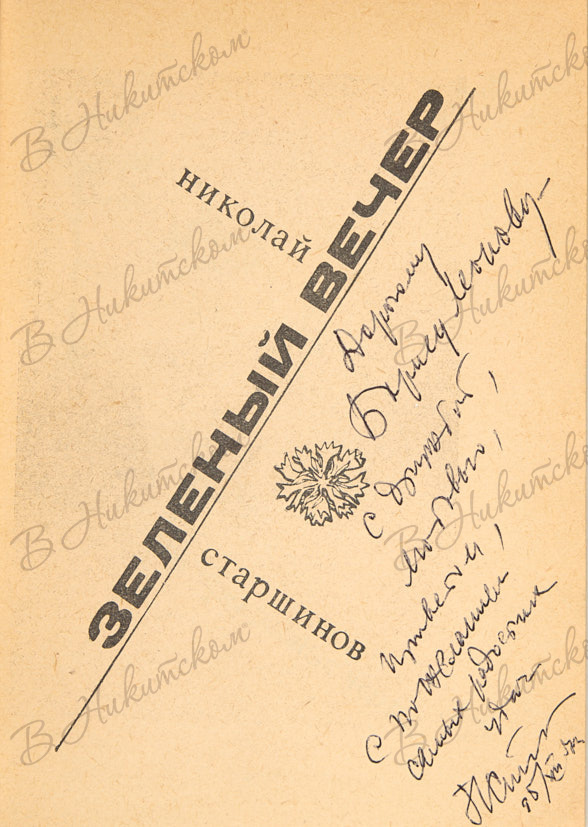 николай
ЗЕЛЕНЫЙ ВЕЧЕР
старшинов
Дорогому
Борису Леонову —
с дружбой,
любовью,
приветом,
с пожеланием
самых радостных
удач
В Никитском
В Никитском
В Никитском
В Никитском
В Никитском
В Никитском
В Никитском
В Никитском